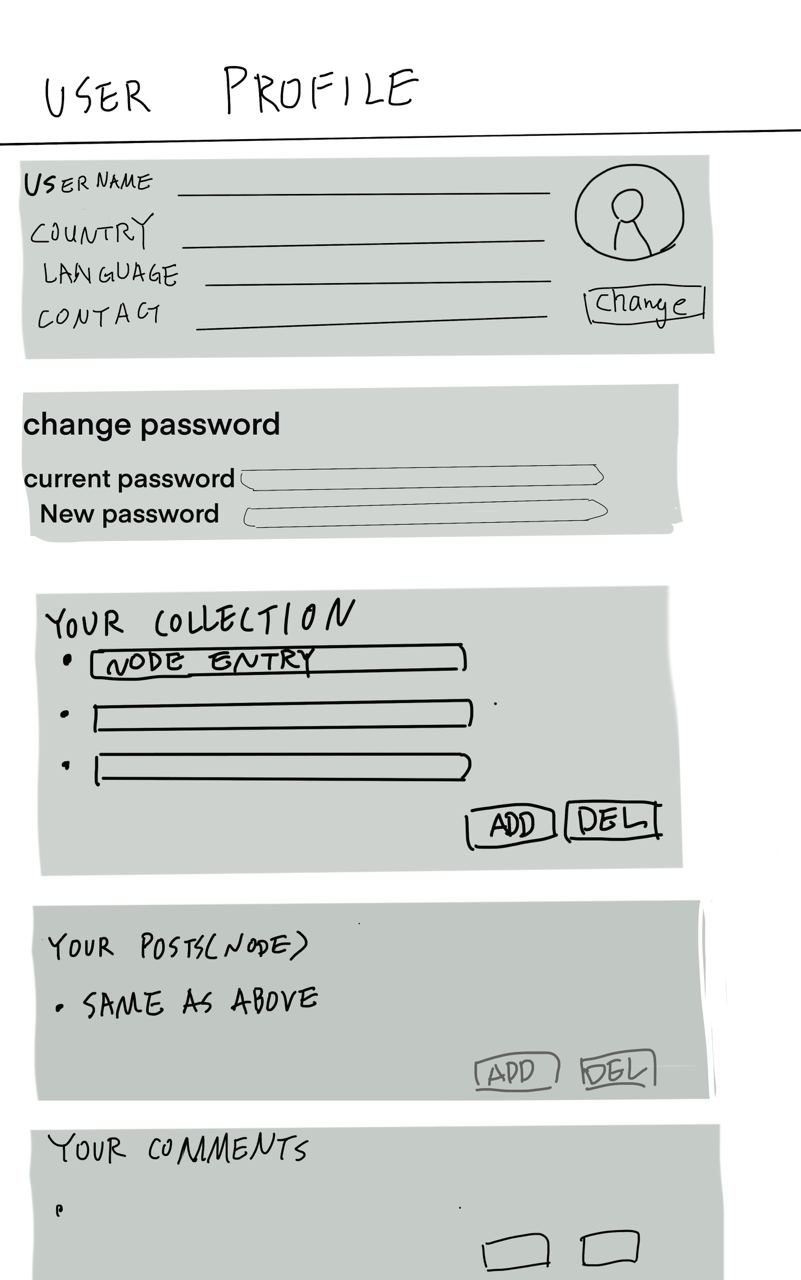 USER PROFILE
USERNAME
COUNTRY
LANGUAGE
CONTACT
Change
change password
current password
New password
YOUR COLLECTION
NODE ENTRY
ADD DEL
YOUR POSTS(NODE)
• SAME AS ABOVE
ADD DEL
YOUR COMMENTS